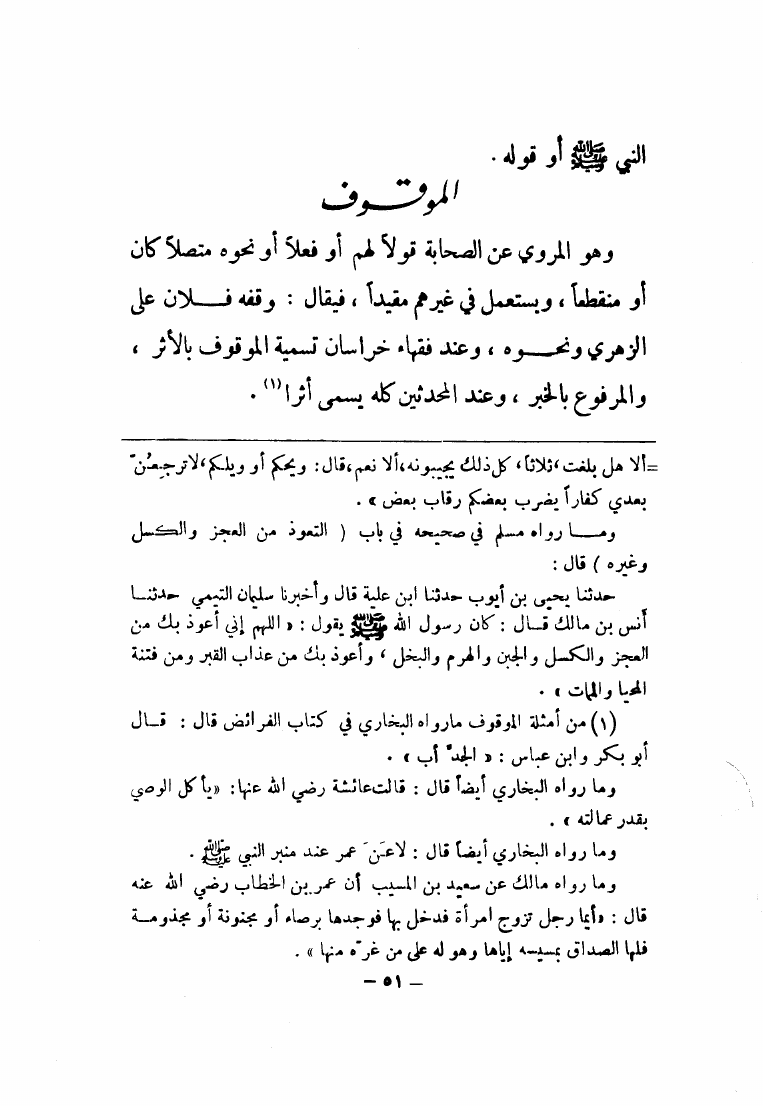 النبي ﷺ أو قوله .
الموقوف
وهو المروي عن الصحابة قولاً لهم أو فعلاً أو نحوه متصلاً كان
أو منقطعاً ، ويستعمل في غيرهم مقيداً ، فيقال : وقفه فلان على
الزهري ونحوه ، وعند فقهاء خراسان تسمية الموقوف بالأثر ،
والمرفوع بالخبر ، وعند المحدثين كله يسمى أثرا (١) .
=ألا هل بلغت ، ثلاثاً ، كل ذلك يجيبونه ، ألا نعم ، قال : ويحكم أو ويلكم ، لا ترجعُنّ
بعدي كفاراً يضرب بعضكم رقاب بعض » .
وما رواه مسلم في صحيحه في باب ( التعوذ من العجز والكسل
وغيره ) قال :
حدثنا يحيى بن أيوب حدثنا ابن علية قال وأخبرنا سليمان التيمي حدثنا
أنس بن مالك قال : كان رسول الله ﷺ يقول : « اللهم إني أعوذ بك من
العجز والكسل والجبن والهرم والبخل ، وأعوذ بك من عذاب القبر ومن فتنة
المحيا والممات » .
(١) من أمثلة الموقوف مارواه البخاري في كتاب الفرائض قال : قال
أبو بكر وابن عباس : « الجدّ أب » .
وما رواه البخاري أيضاً قال : قالت عائشة رضي الله عنها : «يأكل الوصي
بقدر عمالته » .
وما رواه البخاري أيضاً قال : لاعَنَ عمر عند منبر النبي ﷺ .
وما رواه مالك عن سعيد بن المسيب أن عمر بن الخطاب رضي الله عنه
قال : «أيما رجل تزوج امرأة فدخل بها فوجدها برصاء أو مجنونة أو مجذومة
فلها الصداق بمسيسه إياها وهو له على من غرّه منها » .
– ٥١ –